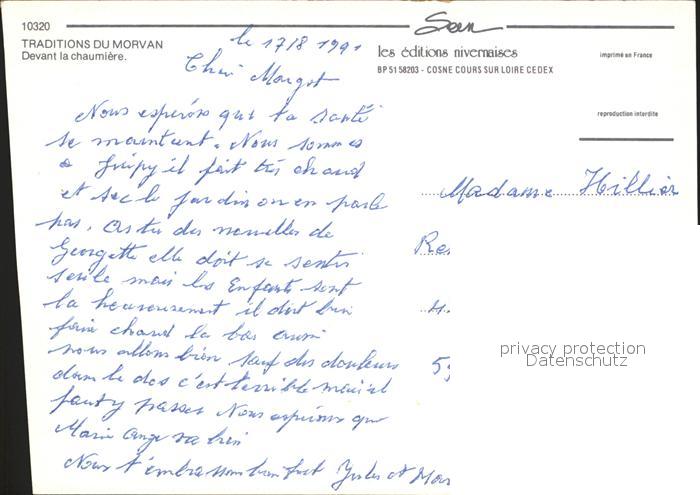 10320
TRADITIONS DU MORVAN
Devant la chaumière.
les éditions nivernaises
BP 51 58203 - COSNE COURS SUR LOIRE CEDEX
imprimé en France
reproduction interdite
le 17/8 1991
Cheri Margot
Nous espérons que ta santé
se maintient. Nous sommes
a il fait très chaud
et sec le jardin on en parle
pas. as tu des nouvelles de
Georgette elle doit se sentir
seule mais les Enfants sont
la heureusement il doit bien
faire chaud la bas aussi
nous allons bien sauf des douleurs
dans le dos c'est terrible mais il
faut y passer Nous espérons que
Marie ange va bien
Nous t'embrassons bien fort Jules et Mar
Madame Hillier
Res
4.
59
privacy protection
Datenschutz